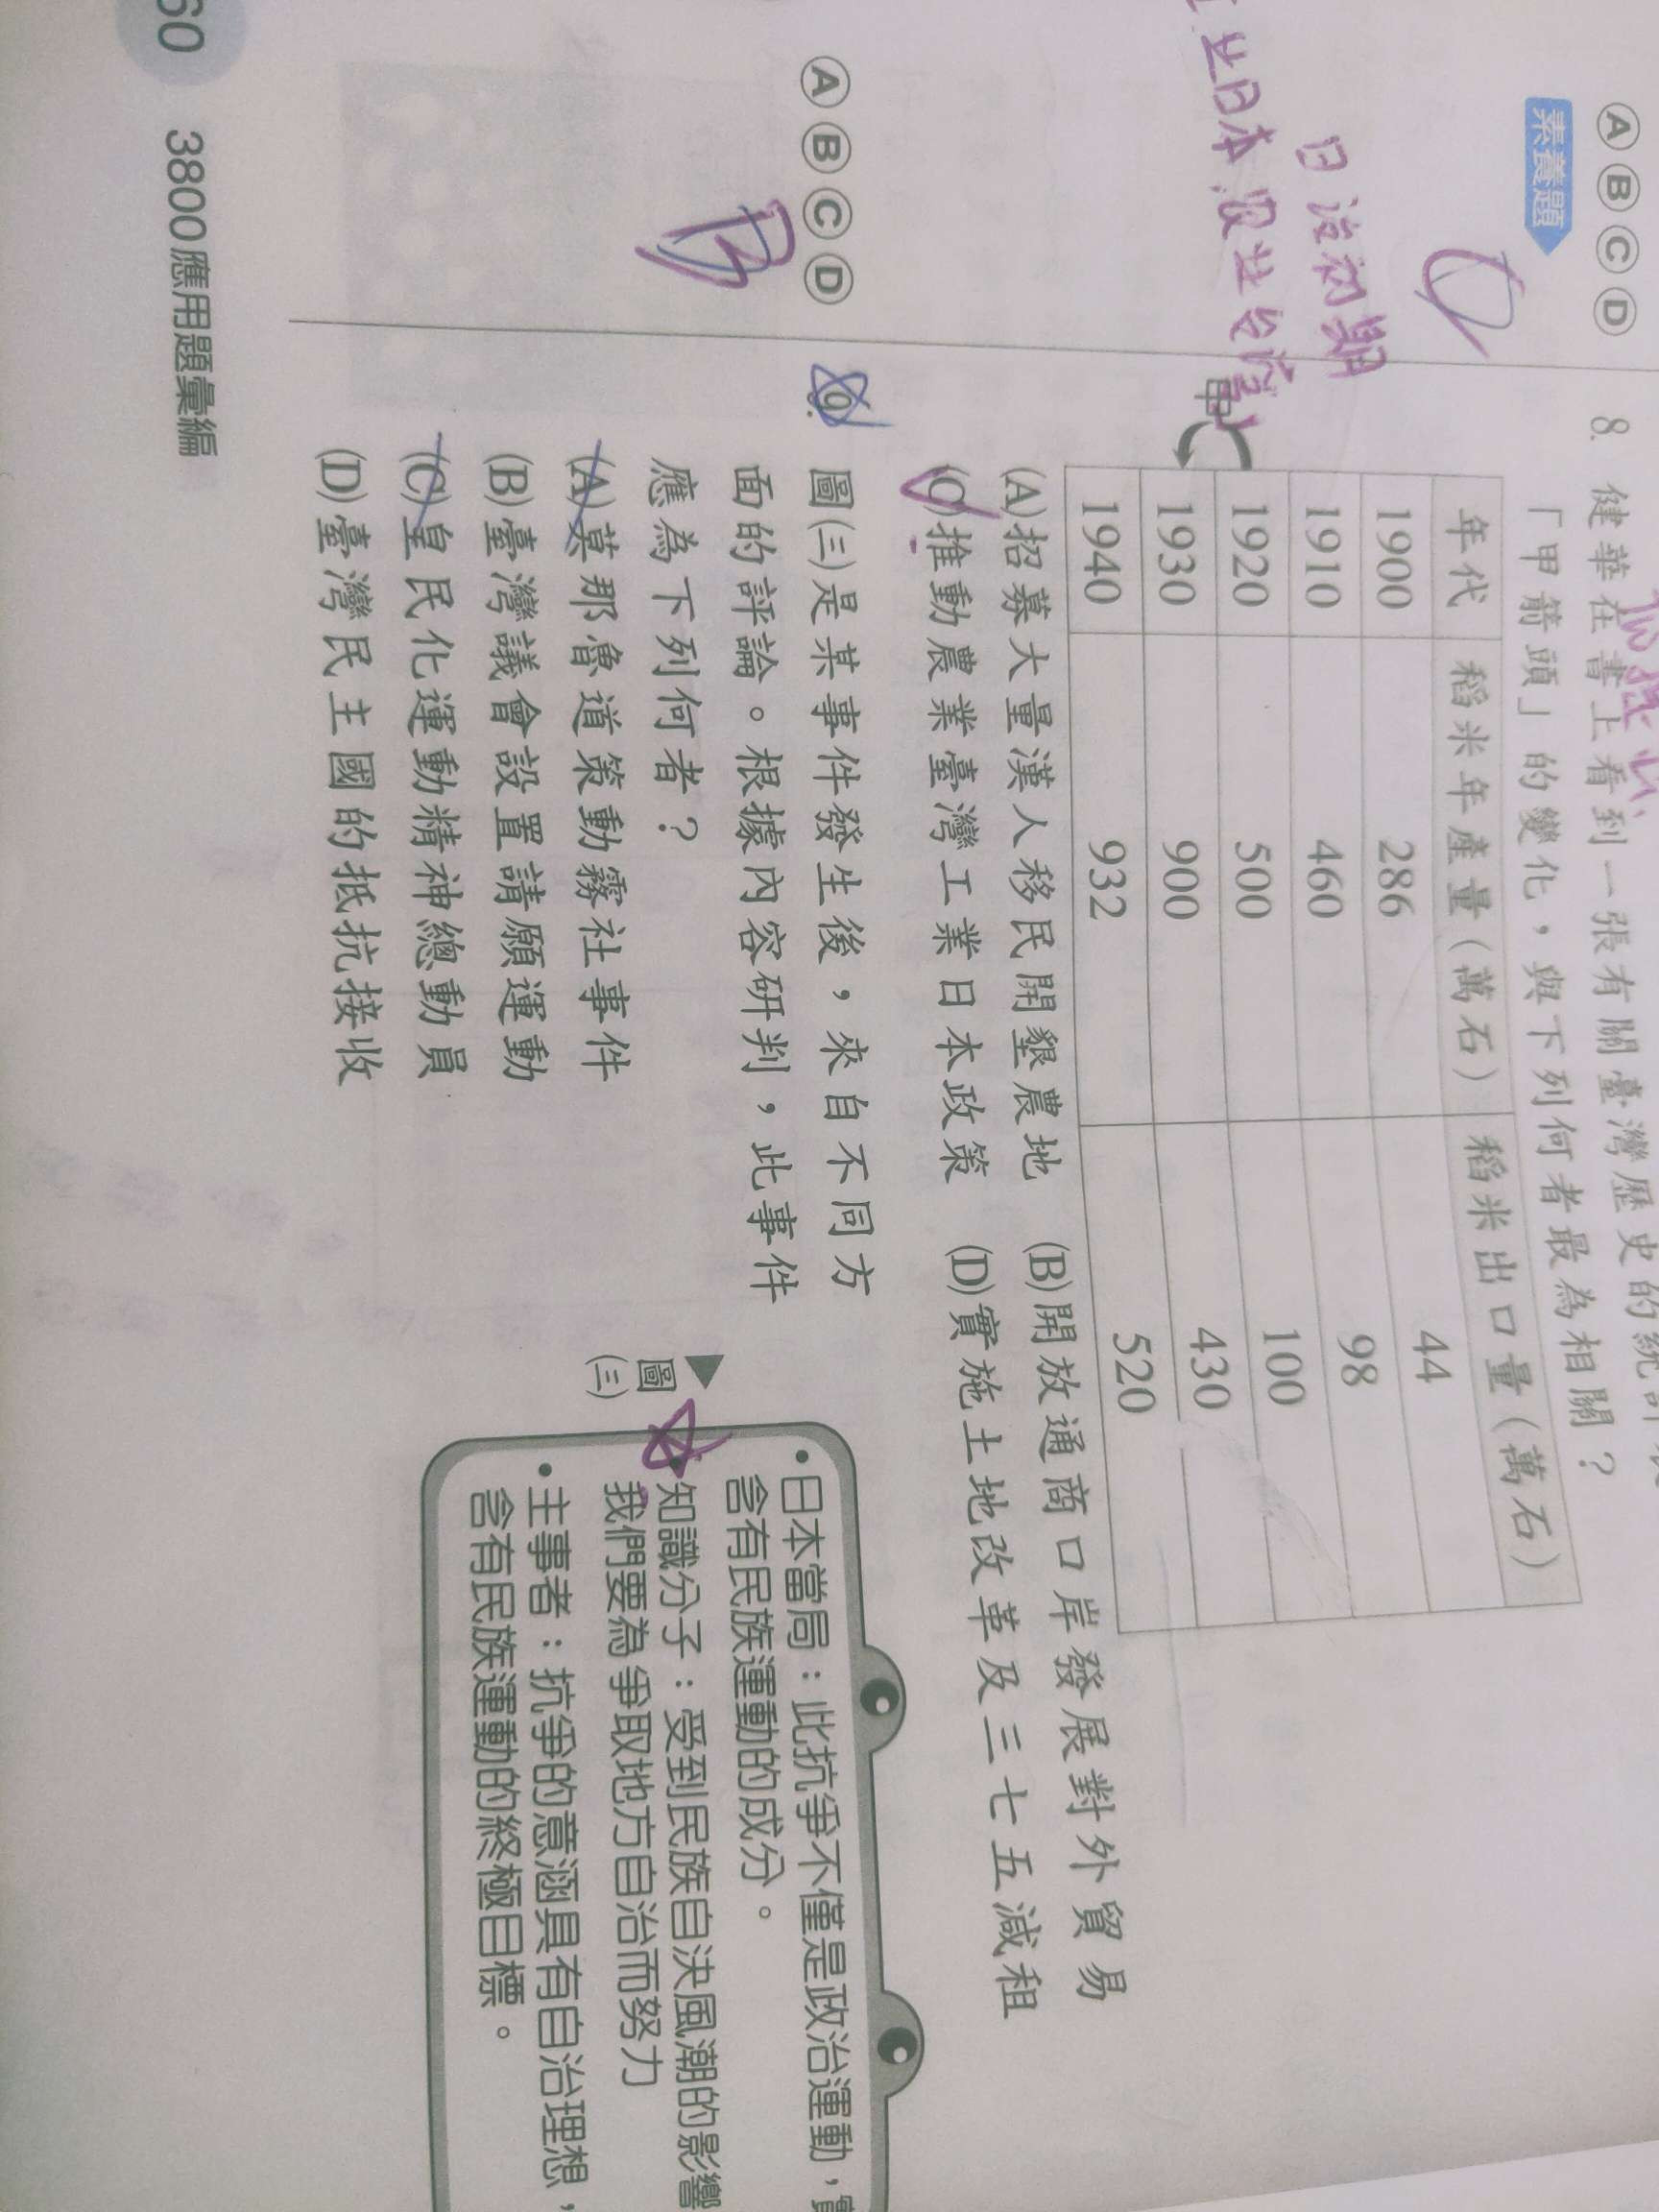 ⒶⒷⒸⒹ
素養題
8. 健華在書上看到一張有關臺灣歷史的統計
「甲箭頭」的變化，與下列何者最為相關？
年代 稻米年產量(萬石) 稻米出口量(萬石)
1900 286 44
1910 460 98
1920 500 100
1930 900 430
1940 932 520
甲
日治初期
業日本,農業台灣
(A)招募大量漢人移民開墾農地 (B)開放通商口岸發展對外貿易
(C)推動農業臺灣工業日本政策 (D)實施土地改革及三七五減租
ⒶⒷⒸⒹ
B
9. 圖(三)是某事件發生後，來自不同方
面的評論。根據內容研判，此事件
應為下列何者？
(A)莫那魯道策動霧社事件
(B)臺灣議會設置請願運動
(C)皇民化運動精神總動員
(D)臺灣民主國的抵抗接收
圖(三)
•日本當局：此抗爭不僅是政治運動，實
含有民族運動的成分。
•知識分子：受到民族自決風潮的影響
我們要為爭取地方自治而努力
•主事者：抗爭的意涵具有自治理想，
含有民族運動的終極目標。
60 3800應用題彙編